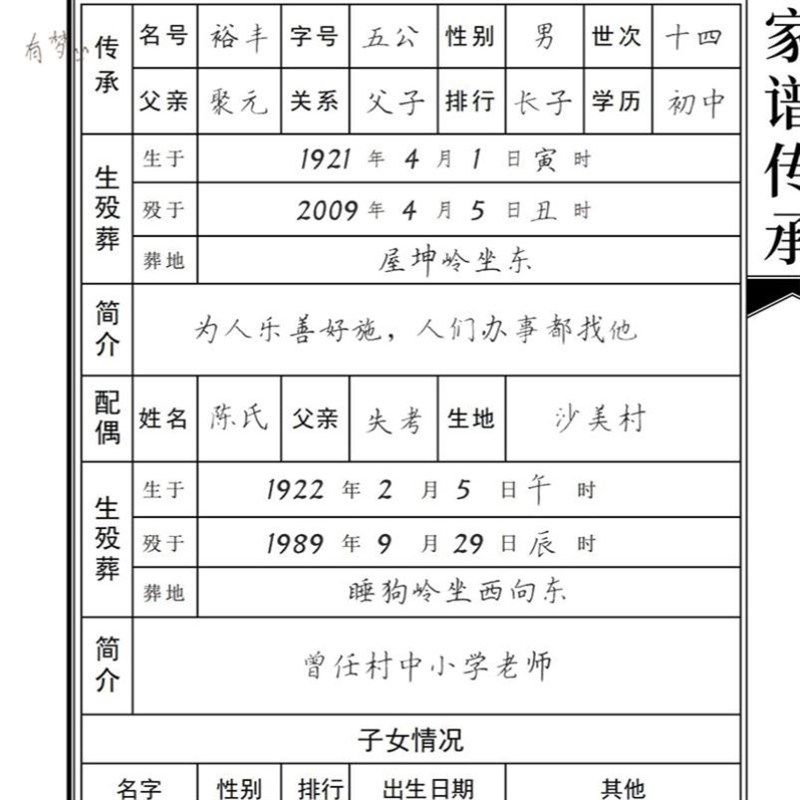 有梦
家谱传承
传承 名号 裕丰 字号 五公 性别 男 世次 十四
父亲 聚元 关系 父子 排行 长子 学历 初中
生殁葬 生于 1921 年 4 月 1 日 寅 时
殁于 2009 年 4 月 5 日 丑 时
葬地 屋坤岭坐东
简介 为人乐善好施，人们办事都找他
配偶 姓名 陈氏 父亲 失考 生地 沙美村
生殁葬 生于 1922 年 2 月 5 日 午 时
殁于 1989 年 9 月 29 日 辰 时
葬地 睡狗岭坐西向东
简介 曾任村中小学老师
子女情况
名字 性别 排行 出生日期 其他